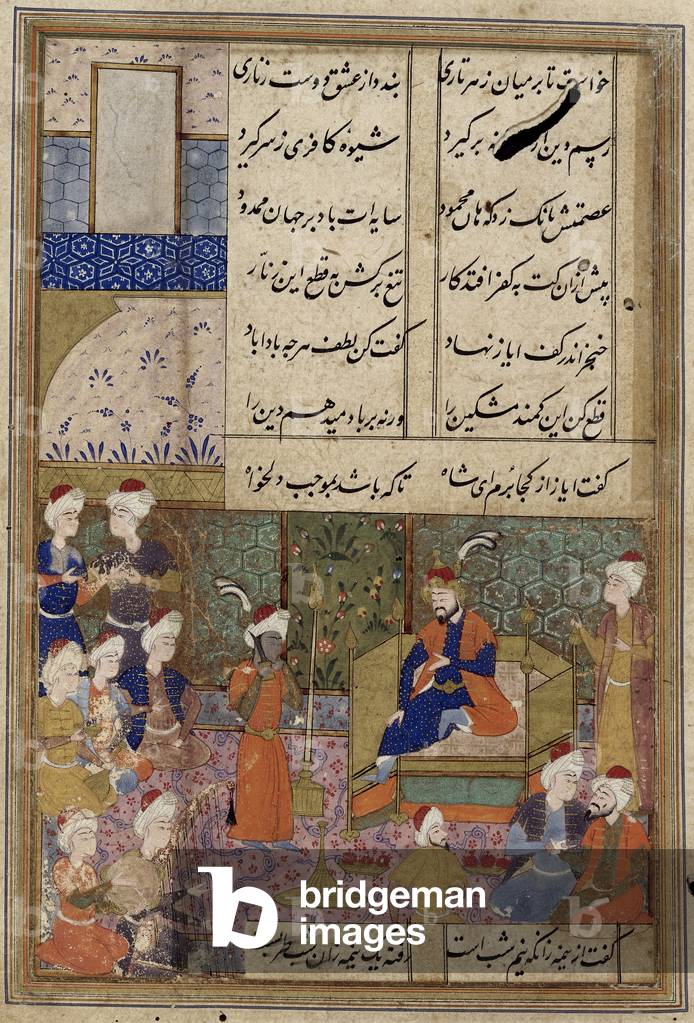 خواست تا بر میان زهر تاری بندد از عشق دوست زناری
رسم دین از برگیرد شیوهٔ کافری ز سر گیرد
عصمتش بانک زد که هان محمود سایه‌ات باد بر جهان ممدود
پیش ازان کت به کفر افتد کار تیغ برکش به قطع این زنار
خنجر اندر کف ایاز نهاد گفت کن لطف هرچه باداباد
قطع کن این کمند مشکین را ورنه بر باد میدهم دین را
گفت ایاز از کجا برم ای شاه تا که باشد بموجب دلخواه
گفت از نیمه زانکه نیم شب است
bridgeman images